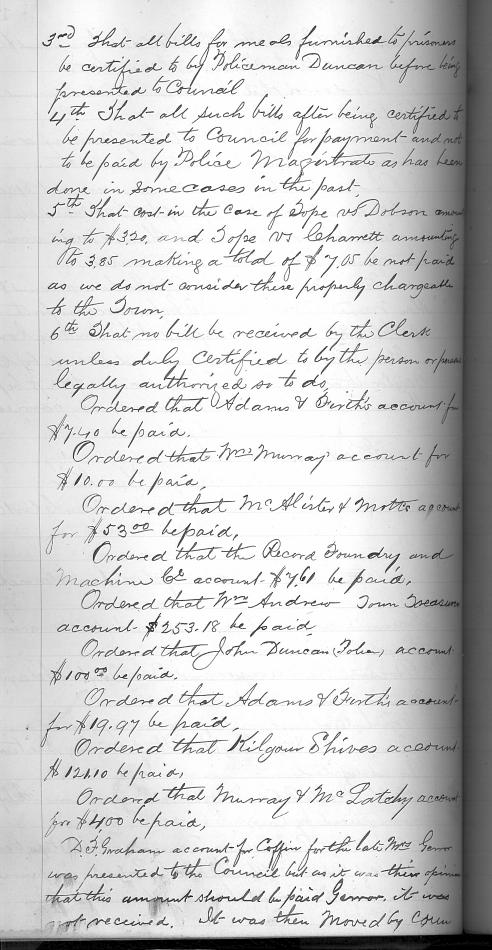 3rd That all bills for meals furnished to prisoners
be certified to by Policeman Duncan before being
presented to Council
4th That all such bills after being certified to
be presented to Council for payment and not
to be paid by Police Magistrate as has been
done in some cases in the past.
5th That cost in the case of Tope vs Dobson amount
ing to $3.20, and Tope vs Charrett amounting
to 3.85 making a total of $7.05 be not paid
as we do not consider these properly chargeable
to the Town,
6th That no bill be received by the Clerk
unless duly certified to by the person or persons
legally authorized so to do,
Ordered that Adams & Firth's account for
$7.40 be paid.
Ordered that Mrs Murray account for
$10.00 be paid,
Ordered that McAlister & Motts account
for $53.00 be paid,
Ordered that the Record Foundry and
Machine Co account $7.61 be paid,
Ordered that Wm Andrew Town Treasurer
account $253.18 be paid
Ordered that John Duncan (Police) account
$100.00 be paid.
Ordered that Adams & Firth's account
for $19.97 be paid,
Ordered that Kilgour Shives account
$121.10 be paid,
Ordered that Murray & McLatchy account
for $4.00 be paid,
D.F. Graham account for Coffin for the late Mrs
was presented to the Council but as it was their opinion
that this amount should be paid it was
not received. It was then Moved by Coun